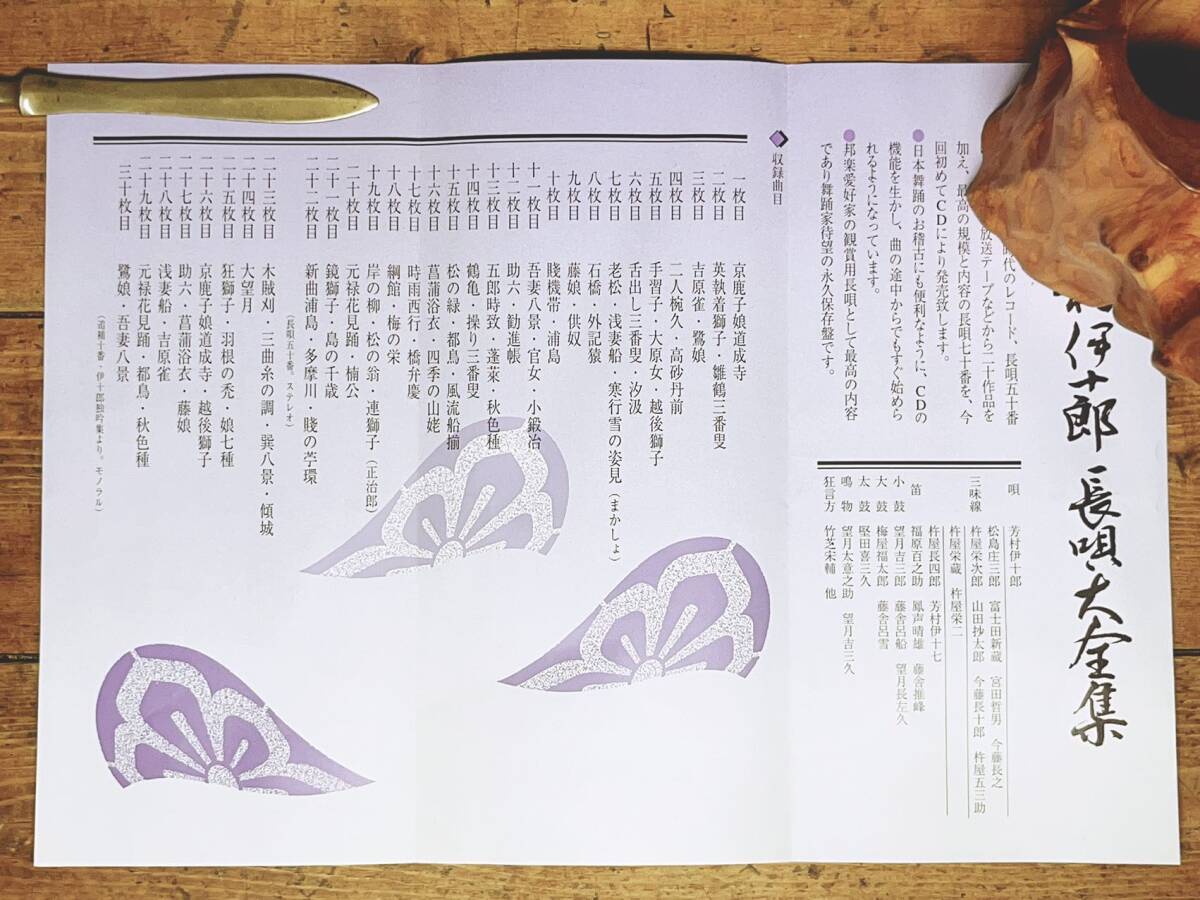 伊十郎 長唄大全集
時代のレコード、長唄五十番
放送テープなどから二十作品を
加え、最高の規模と内容の長唄七十番を、今
回初めてCDにより発売致します。
●日本舞踊のお稽古にも便利なように、CDの
機能を生かし、曲の途中からでもすぐ始めら
れるようになっています。
●邦楽愛好家の観賞用長唄として最高の内容
であり舞踊家待望の永久保存盤です。
唄 芳村伊十郎
松島庄三郎 富士田新蔵 宮田哲男 今藤長之
三味線 杵屋栄次郎 山田抄太郎 今藤長十郎 杵屋五三助
杵屋栄蔵 杵屋栄二
杵屋長四郎 芳村伊十七
笛 福原百之助 鳳声晴雄 藤舎推峰
小鼓 望月吉三郎 藤舎呂船 望月長左久
大鼓 梅屋福太郎 藤舎呂雪
太鼓 堅田喜三久
鳴物 望月太意之助 望月吉三久
狂言方 竹芝未輔 他
◆収録曲目
一枚目 京鹿子娘道成寺
二枚目 英執着獅子・雛鶴三番叟
三枚目 吉原雀・鷺娘
四枚目 二人椀久・高砂丹前
五枚目 手習子・大原女・越後獅子
六枚目 舌出し三番叟・汐汲
七枚目 老松・浅妻船・寒行雪の姿見(まかしょ)
八枚目 石橋・外記猿
九枚目 藤娘・供奴
十枚目 賤機帯・浦島
十一枚目 吾妻八景・官女・小鍛冶
十二枚目 助六・勧進帳
十三枚目 五郎時致・蓬莱・秋色種
十四枚目 鶴亀・操り三番叟
十五枚目 松の緑・都鳥・風流船揃
十六枚目 菖蒲浴衣・四季の山姥
十七枚目 時雨西行・橋弁慶
十八枚目 綱館・梅の栄
十九枚目 岸の柳・松の翁・連獅子(正治郎)
二十枚目 元禄花見踊・楠公
二十一枚目 鏡獅子・島の千歳
二十二枚目 新曲浦島・多摩川・賤の苧環
(長唄五十番。ステレオ)
二十三枚目 木賊刈・三曲糸の調・巽八景・傾城
二十四枚目 大望月
二十五枚目 狂獅子・羽根の禿・娘七種
二十六枚目 京鹿子娘道成寺・越後獅子
二十七枚目 助六・菖蒲浴衣・藤娘
二十八枚目 浅妻船・吉原雀
二十九枚目 元禄花見踊・都鳥・秋色種
三十枚目 鷺娘・吾妻八景
(追補十番・伊十郎独吟集より。モノラル)